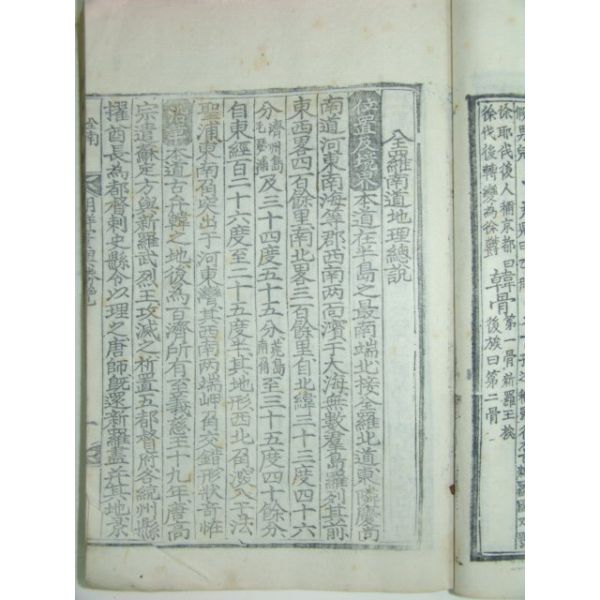 徐耶伐後人稱京都曰
徐伐後轉變為徐菀
韓骨
第一骨新羅王族
後族曰第二骨
全羅南道地理總說
位置及境界本道在半島之最南端北接全羅北道東隣慶尙
南道河東南海等郡西南两向濱于大海無數羣島羅列其前
東西畧四百餘里南北畧三百餘里自北緯三十三度四十六
分濟州島毛瑟浦及三十四度五十五分荒島南角至三十五度四十餘分
自東經百二十六度至二十五度半其地形西北角突入于法
聖浦東南角突出于河東灣其西南两端岬角交錯形狀奇恠
本道古弁韓之地後為百濟所有至義慈王十九年唐高
宗遣蘇定方與新羅武烈王攻滅之析置五都督府各統州縣
擢酋長為都督刺史縣令以理之唐師旣還新羅盡并其地景